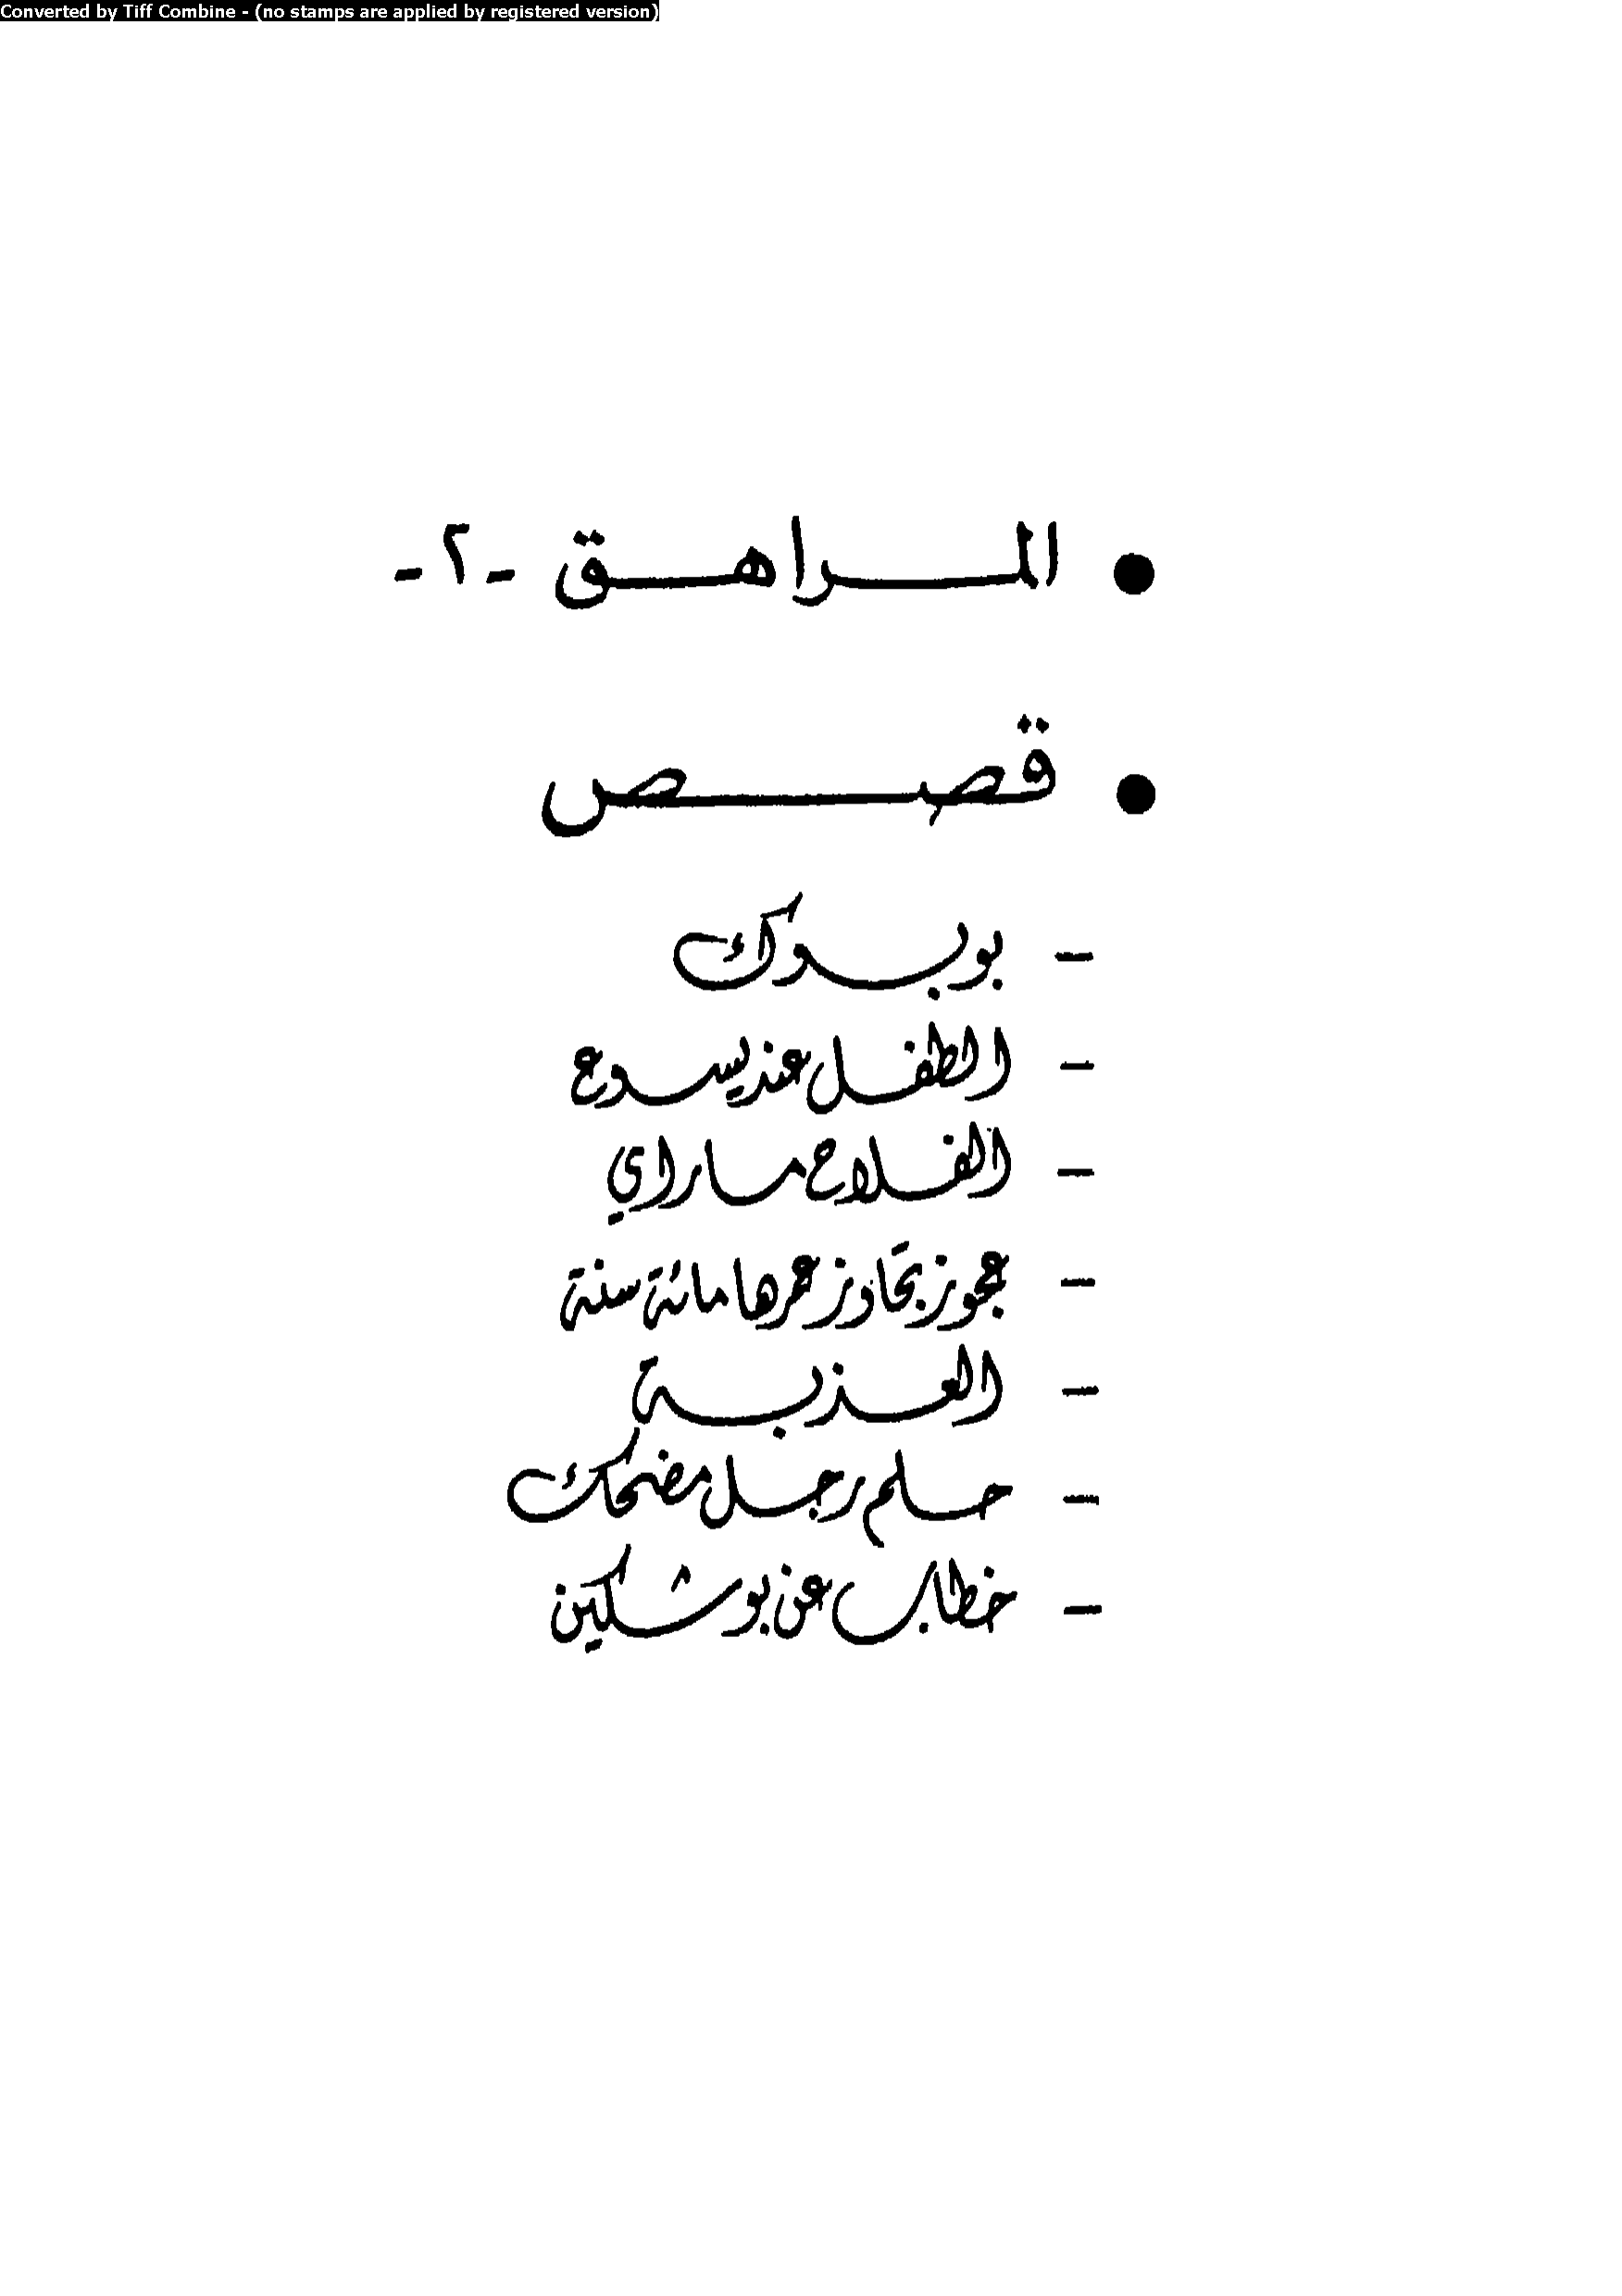 Converted by Tiff Combine - (no stamps are applied by registered version)
• المراهق -٢-
• قصص
- بوبوك
- الطفل عند يسوع
- الفلاح ماراي
- عجوز تجاوز عمرها مائة سنة
- العذبة
- حلم رجل مضحك
- خطاب عن بوشكين